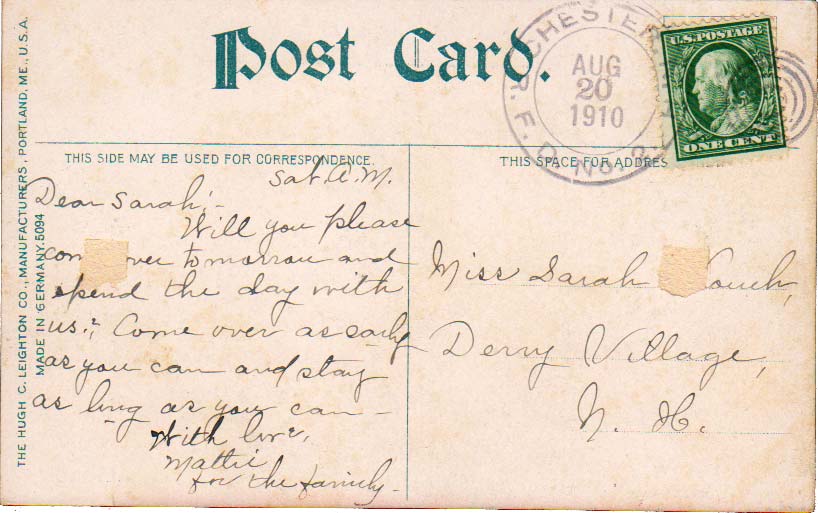 Post Card.
CHESTER
AUG
20
1910
R.F.D. No. 2
U.S. POSTAGE
ONE CENT
THIS SIDE MAY BE USED FOR CORRESPONDENCE.
THIS SPACE FOR ADDRES
Sat. A.M.
Dear Sarah:-
Will you please
com ver tomorrow and
spend the day with
us? Come over as early
as you can and stay
as long as you can -
With love,
Mattie
for the family -
Miss Sarah ouch,
Derry Village,
N. H.
THE HUGH C. LEIGHTON CO., MANUFACTURERS, PORTLAND, ME., U.S.A.
MADE IN GERMANY. 5094